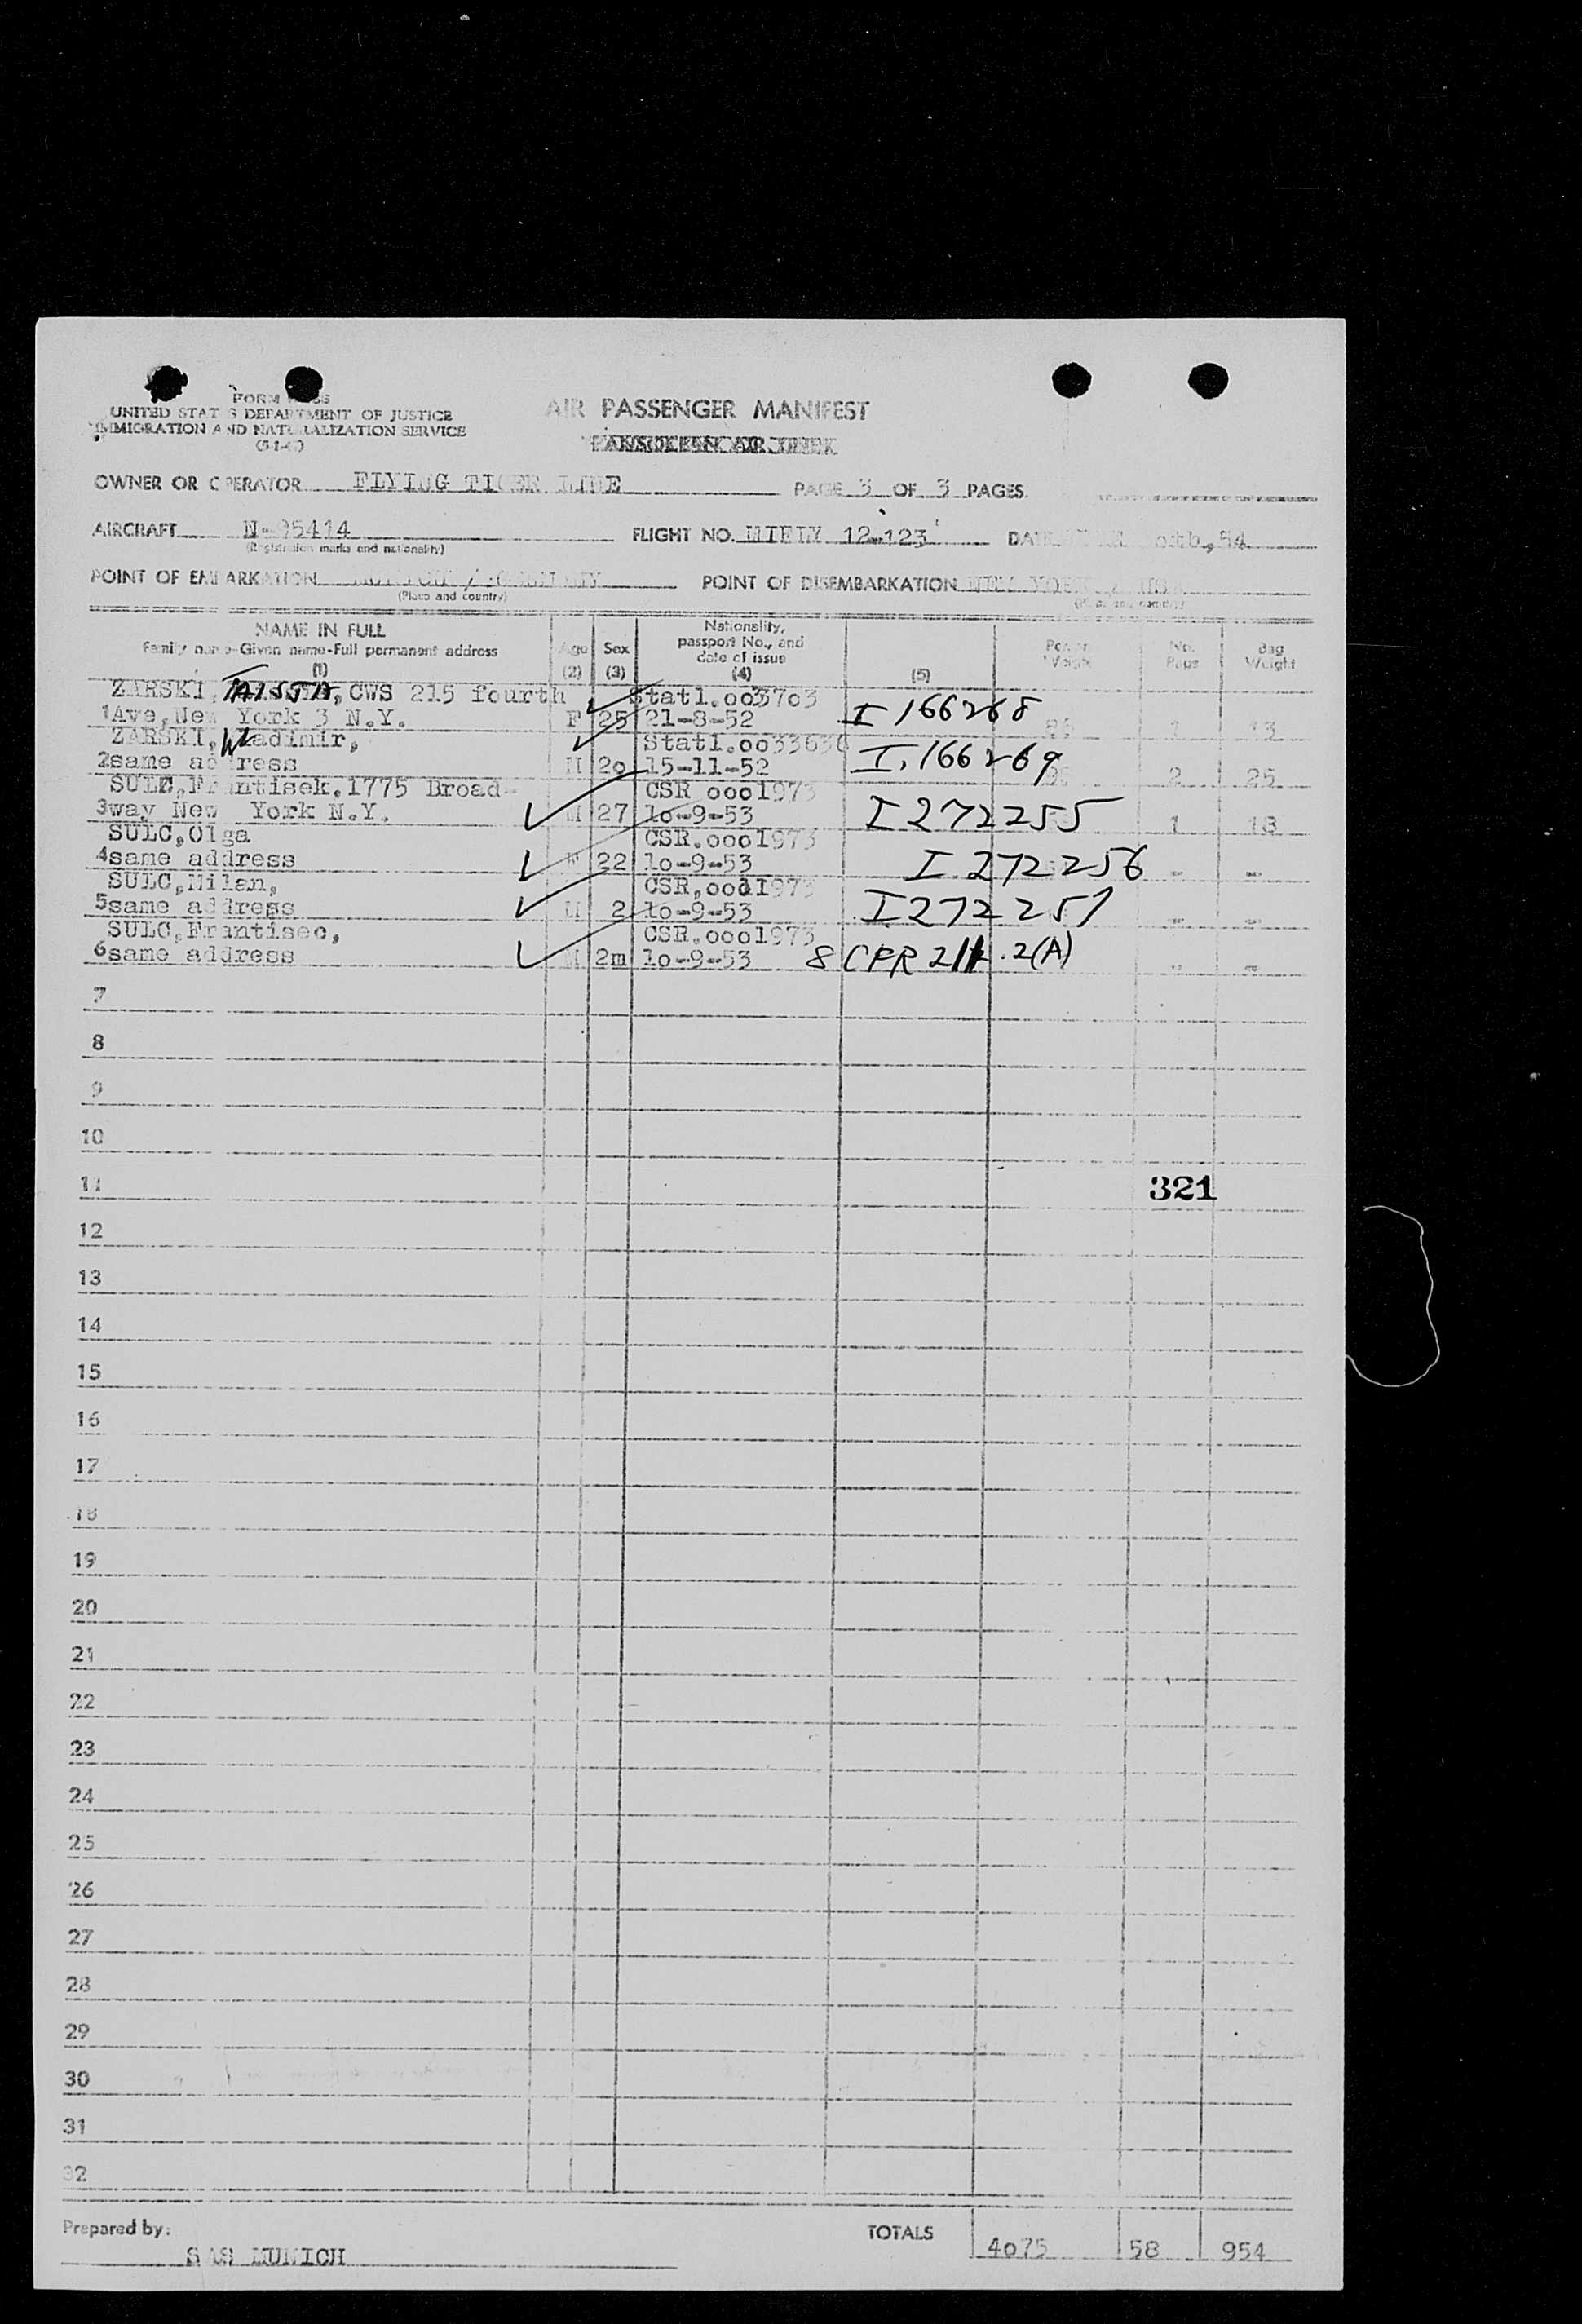 FORM
UNITED STATES DEPARTMENT OF JUSTICE
IMMIGRATION AND NATURALIZATION SERVICE
AIR PASSENGER MANIFEST
OWNER OR OPERATOR FLYING TIGER LINE PAGE 3 OF 3 PAGES
AIRCRAFT N-95414 FLIGHT NO. 12-123 54
(Registration marks and nationality)
POINT OF EMBARKATION POINT OF DISEMBARKATION NEW YORK
(Place and country)
NAME IN FULL
Family name-Given name-Full permanent address
(1)
Age
(2)
Sex
(3)
Nationality,
passport No., and
date of issue
(4)
(5)
No.
Bags
Bag
Weight
ZARSKI, CWS 215 fourth Statl.003703
1 Ave, New York 3 N.Y. F 25 21-8-52 I 166268 1 13
ZARSKI, Wladimir, Statl.
2 same address M 2o 15-11-52 I. 166269 2 25
SULC, Frantisek, 1775 Broad- CSR 0001973
3 way New York N.Y. M 27 1o-9-53 I 272255 1 18
SULC, Olga CSR.0001973
4 same address 22 1o-9-53 I 272256
SULC, Milan, CSR,
5 same address M 2 1o-9-53 I 272257
SULC, Frantisec, CSR.0001973
6 same address M 2m 1o-9-53 8 CFR 211.2(A)
7
8
9
10
11 321
12
13
14
15
16
17
18
19
20
21
22
23
24
25
26
27
28
29
30
31
32
Prepared by: TOTALS 4o75 58 954
SAS MUNICH